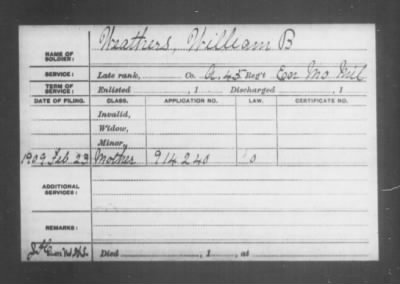 NAME OF SOLDIER: Weathers, William B
SERVICE: Late rank, Co. A. 45 Reg't Enr Mo Mil
TERM OF SERVICE: Enlisted , 1 Discharged , 1
DATE OF FILING. CLASS. APPLICATION NO. LAW. CERTIFICATE NO.
Invalid,
Widow,
Minor,
1909 Feb. 23 Mother 914240 0
ADDITIONAL SERVICES:
REMARKS:
Died , 1 , at